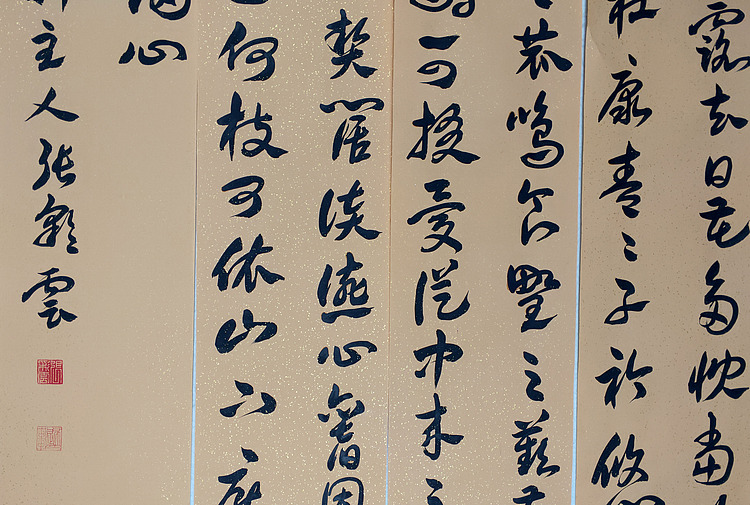 露去日苦多慨當
杜康青々子衿悠
鳴食野之
時可掇憂從中來不
契闊談讌心念舊恩
何枝可依山不厭
歸心
主人張雲